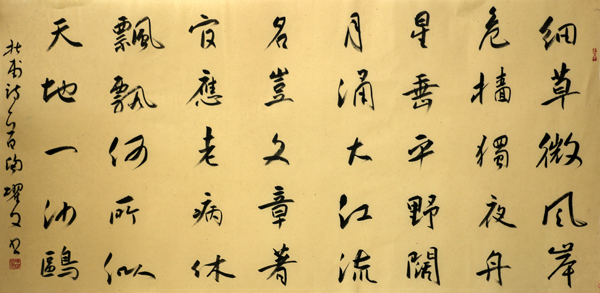 細草微风岸
危檣獨夜舟
星垂平野闊
月涌大江流
名豈文章著
官應老病休
飄飄何所似
天地一沙鷗
杜甫诗一首